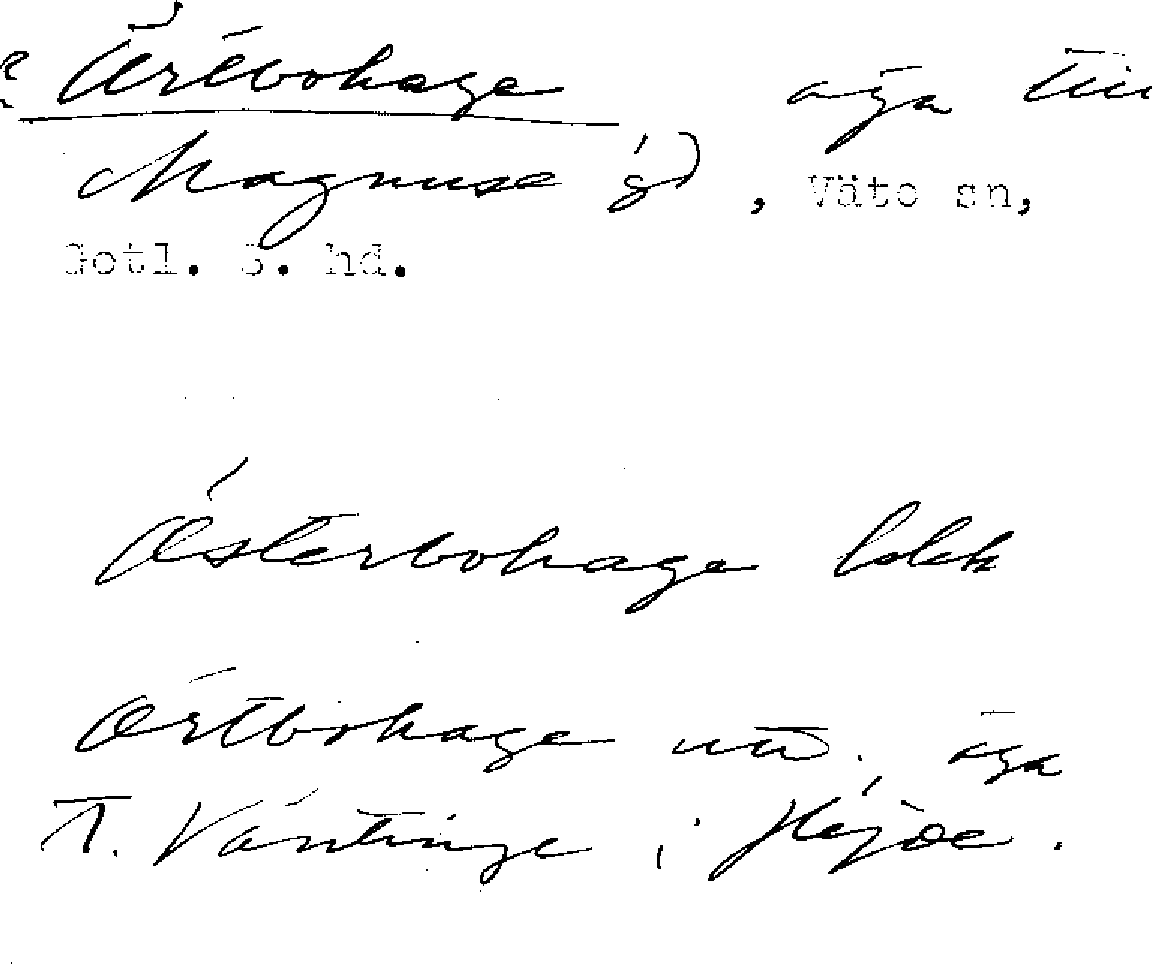 Örtbohage äga till
Magnuse g), Väte sn,
Gotl. S. hd.
Österbohage bkk
Örtbohage utt. äga
t. Väntinge i Hejde.